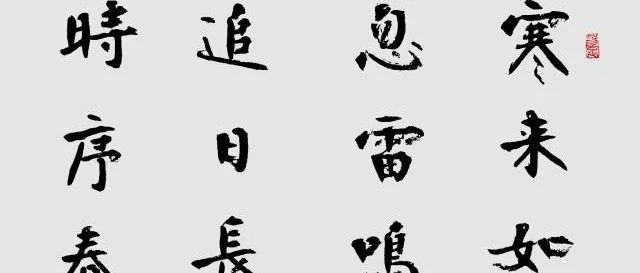 寒来如
忽雷鳴
追日長
時序春